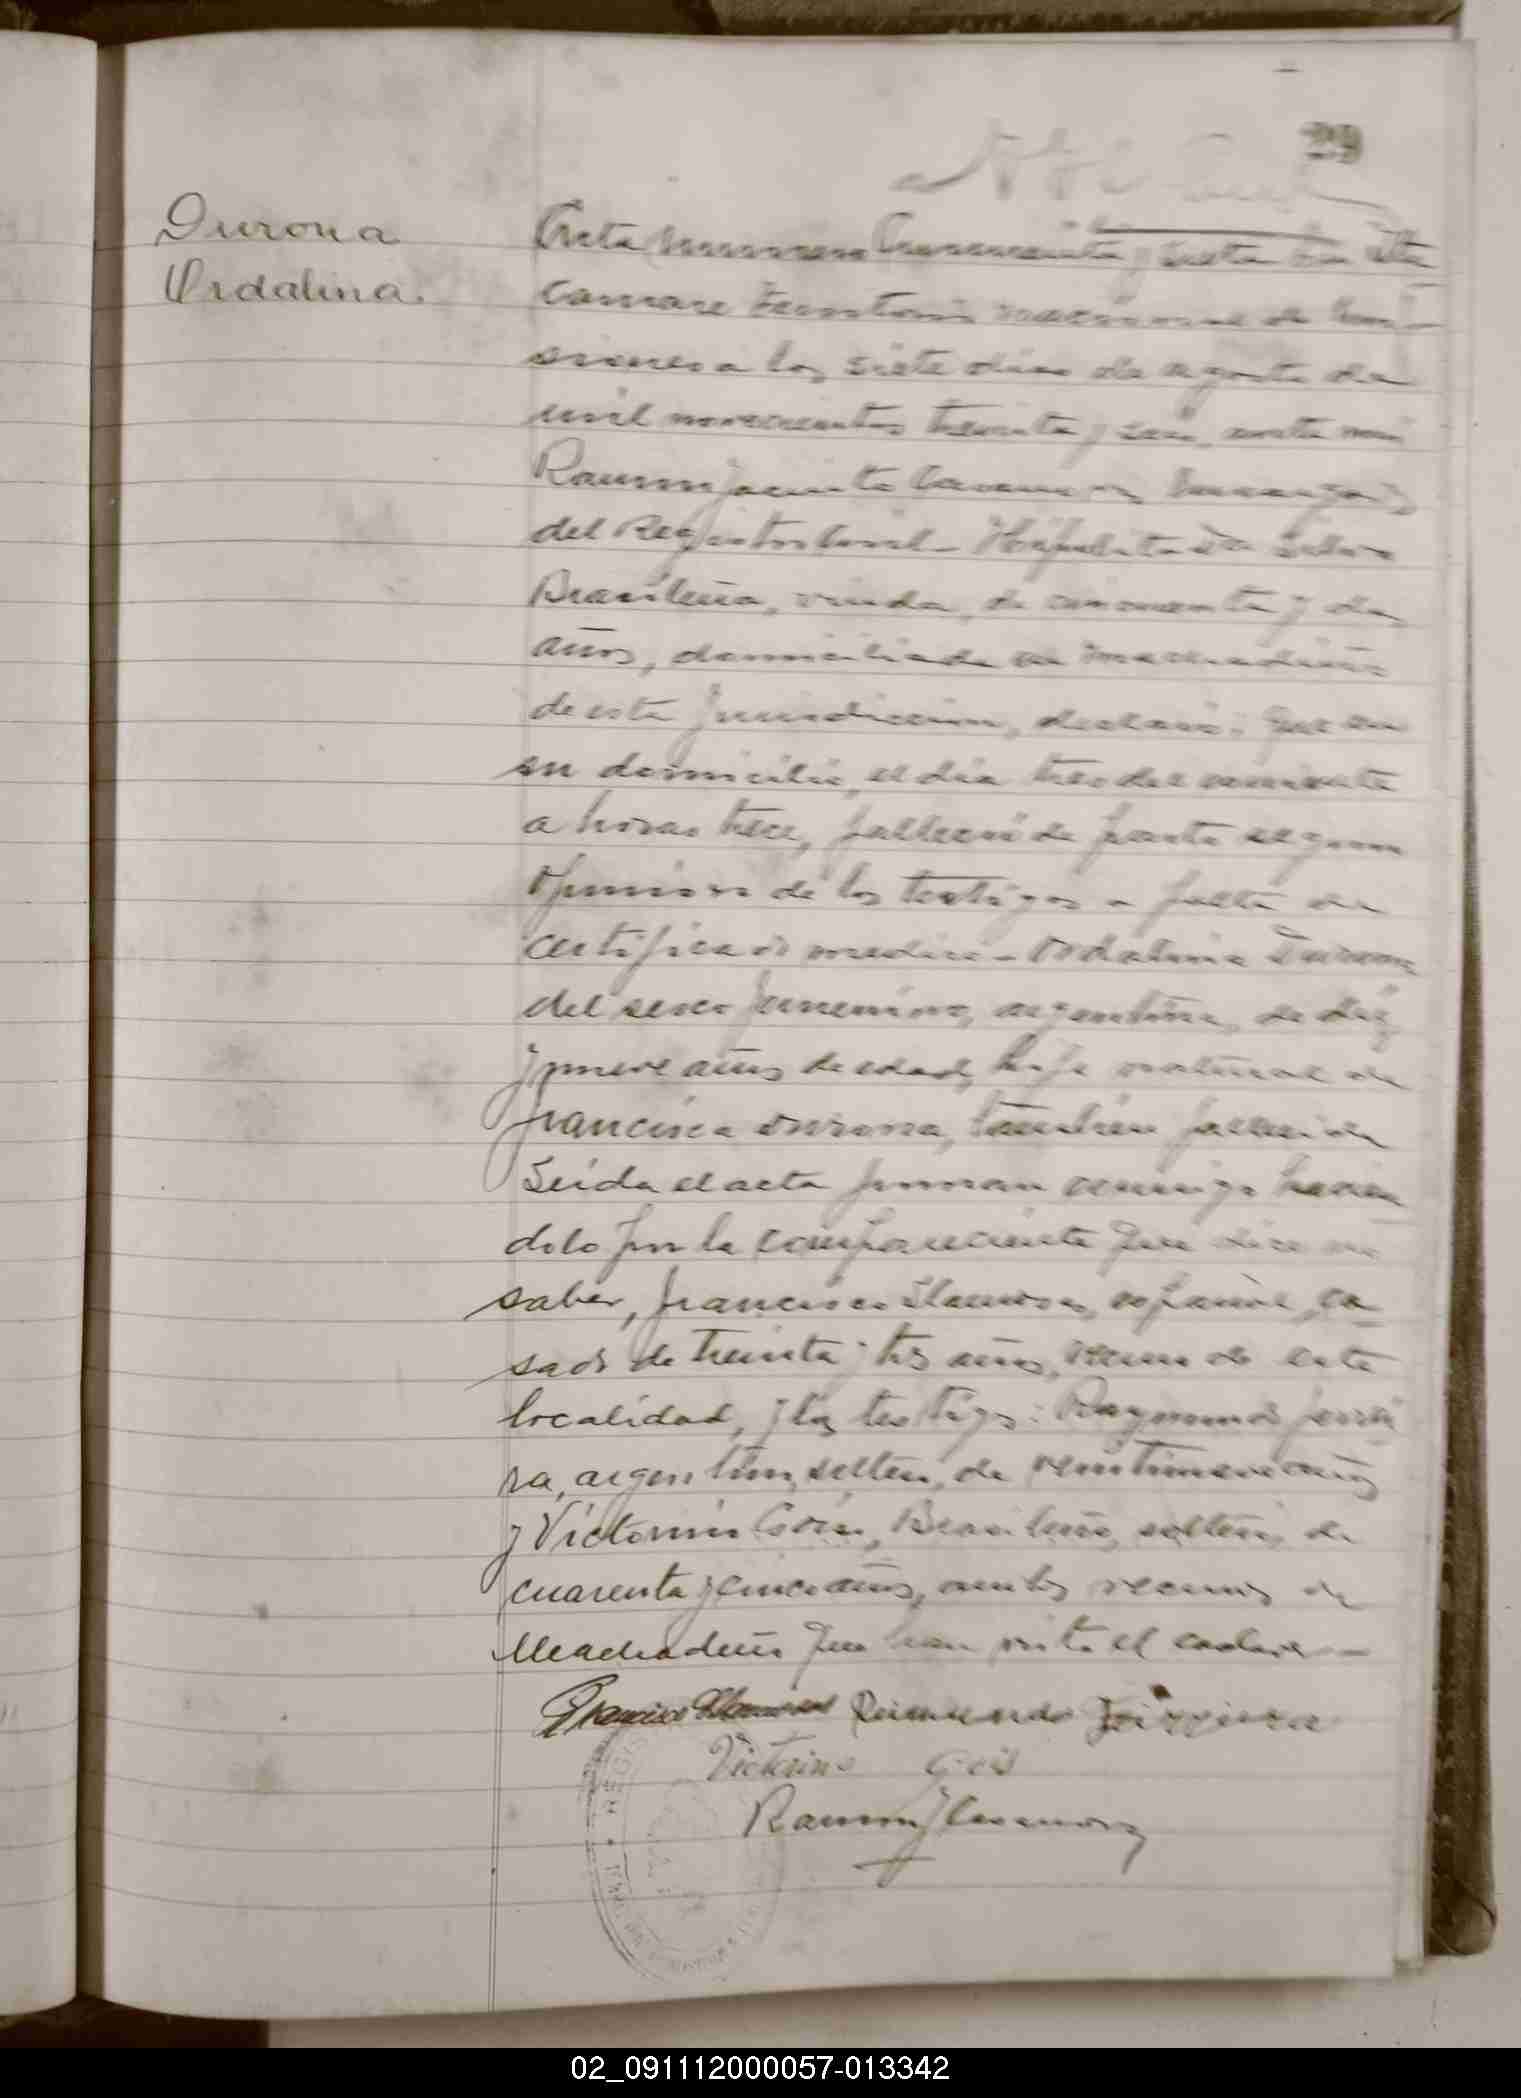 29
Durona
Ordalina.
Acta numero cincuenta y siete En Ita
caruare Territorio nacional de Mi-
siones a los siete dias de agosto de
mil novecientos treinta y seis, ante mi
Ramon Jacinto Encargado
del Registro Civil - Hipolita Da Silva
Brasileña, viuda, de cincuenta y dos
años, domiciliada en Mecking
de esta Jurisdiccion, declaró: Que en
su domicilio, el dia tres del corriente
a horas trece, falleció de parto segun
opinion de los testigos a falta de
certificado medico - Ordalina Durona
del sexo femenino, argentina, de diez
y nueve años de edad, hija natural de
Francisca Durona, tambien fallecida
Leida el acta firman conmigo hacien
dolo por la compareciente que dice no
saber, Francisco Llamosas, español, ca-
sado de treinta y tres años, vecino de esta
localidad, y los testigos: Raymundo Ferrei
ra, argentino, soltero, de veintinueve años
y Victorino Góis, Brasileño, soltero, de
cuarenta y cinco años, ambos vecinos de
que han visto el cadaver -
Francisco Llamosas Raimundo Feirriera
Victorino Gois
Ramon J
REGIS
02_091112000057-013342